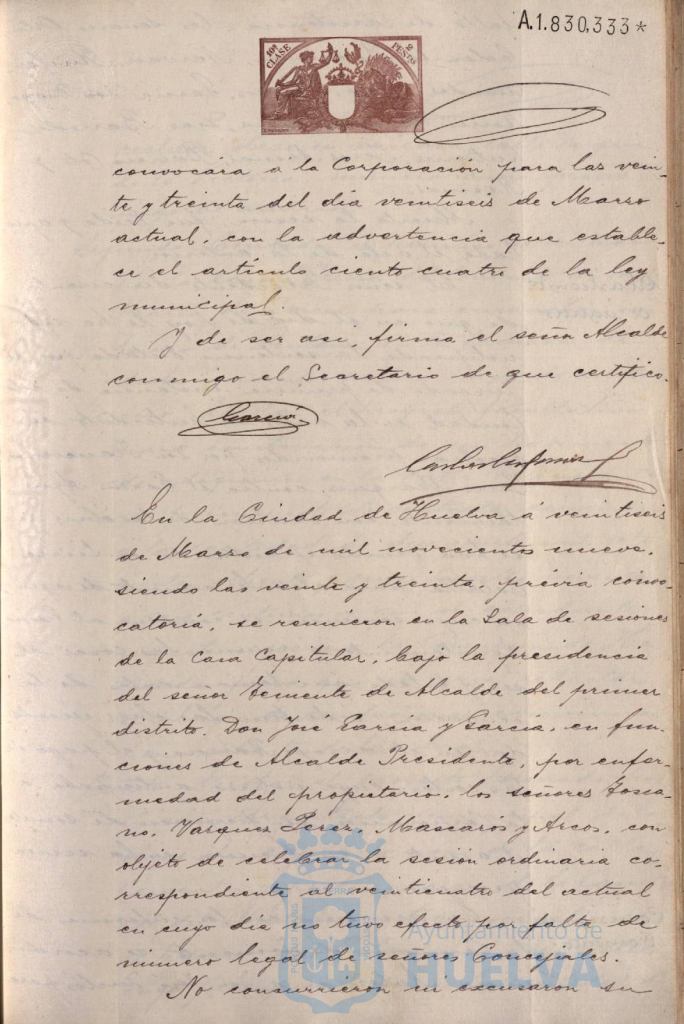 A.1.830.333*
10ª CLASE
2 PESETAS
convocára á la Corporación para las vein-
te y treinta del dia veintiseis de Marzo
actual, con la advertencia que estable-
ce el artículo ciento cuatro de la ley
municipal.
Y de ser asi, firma el señor Alcalde
conmigo el Secretario de que certifico.
García
En la Ciudad de Huelva á veintiseis
de Marzo de mil novecientos nueve,
siendo las veinte y treinta, prévia convo-
catoria, se reunieron en la Sala de sesiones
de la Casa Capitular, bajo la presidencia
del señor Teniente de Alcalde del primer
distrito, Don José Garcia y Garcia, en fun-
ciones de Alcalde Presidente, por enfer-
medad del propietario, los señores Tosca-
no, Vazquez Perez, Mascarós y Arcos, con
objeto de celebrar la sesión ordinaria co-
rrespondiente al veinticuatro del actual
en cuyo dia no tuvo efecto por falta de
número legal de señores Concejales.
No concurrieron ni excusaron su
Ayuntamiento de
HUELVA